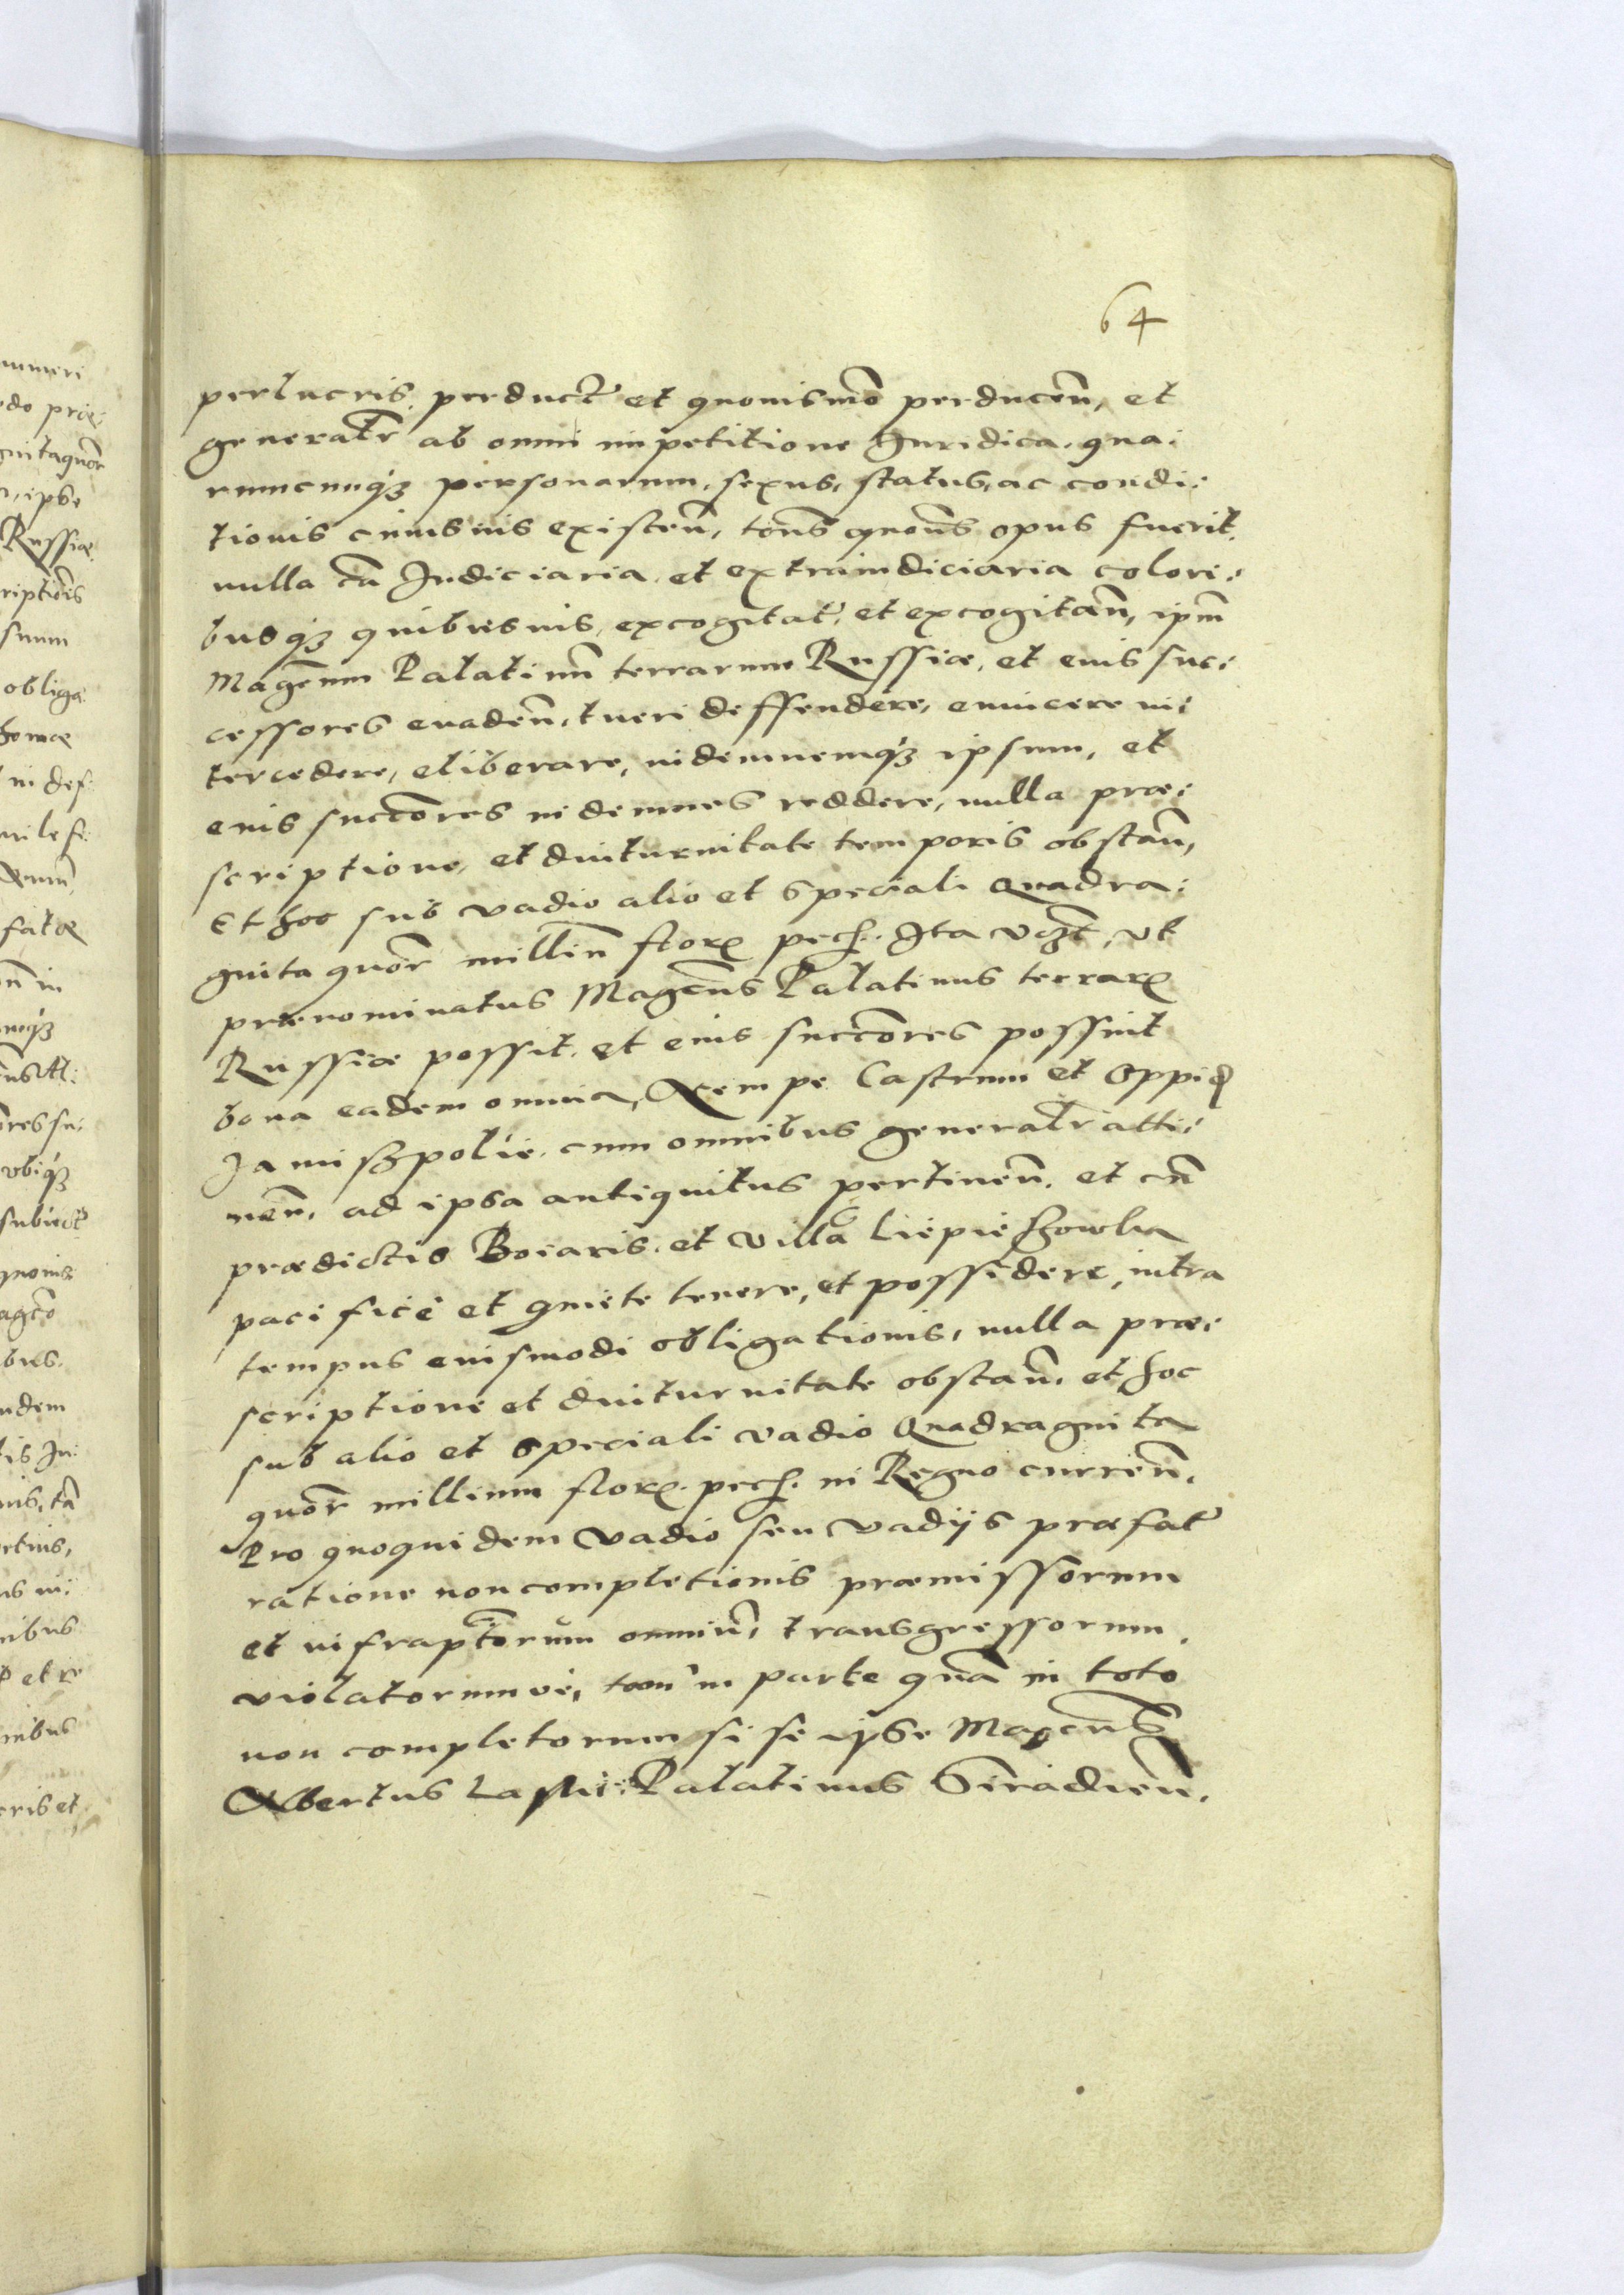 64
perlucris, perduct̃ et quouismõ perducen̄, et
generaľr ab omni impetitione Juridica. qua:
rumcunq́ȝ personarum, sexus, status, ac condi:
tionis cuiusuis existen̄, tõns quõns opus fuerit,
nulla cã Judiciaria, et extraiudiciaria colori:
busq́ȝ quibusuis, excogitat̃, et excogitan̄, ip̃m
Magcũm Palatinũ terrarum Russiæ, et eius suc:
cessores euaden̄, tueri deffendere, euincere in:
tercedere, eliberare, indemnemq́ȝ ipsum, et
eius succõres indemnes reddere, nulla præ:
scriptione, et diuturnitate temporis obstan̄,
Et hoc sub vadio alio et speciali Quadra:
ginta quõr milliũ florꝝ pech. Ita vȝt, vt
prænominatus Magcũs Palatinus terrarꝝ
Russiæ possit, et eius succõres possint
bona eadem omnia, Nempe Castrum et Oppiđ
Janiszpolie, cum omnibus generaľr atti:
nen̄, ad ipsa antiquitus pertinen̄, et cũ
prædictis Boiaris, et villa Liepieszowka
pacificè et quiete tenere, et possidere, intra
tempus euismodi obligationis, nulla præ:
scriptione et diuturnitate obstan̄, et hoc
sub alio et speciali vadio Quadraginta
quõr millium florꝝ. pech. in Regno curren̄.
Pro quoquidem vadio seu vadijs præfat̃
ratione non completionis præmissorum
et infrapt̃orum omniũ, transgressorum,
violatorumue, tam in parte quã in toto
non completorum si se ipse Magcũs
Albertus Laski: Palatinus Siradien̄.
numeri
obliga
Russiæ
suum
in def:
ipse